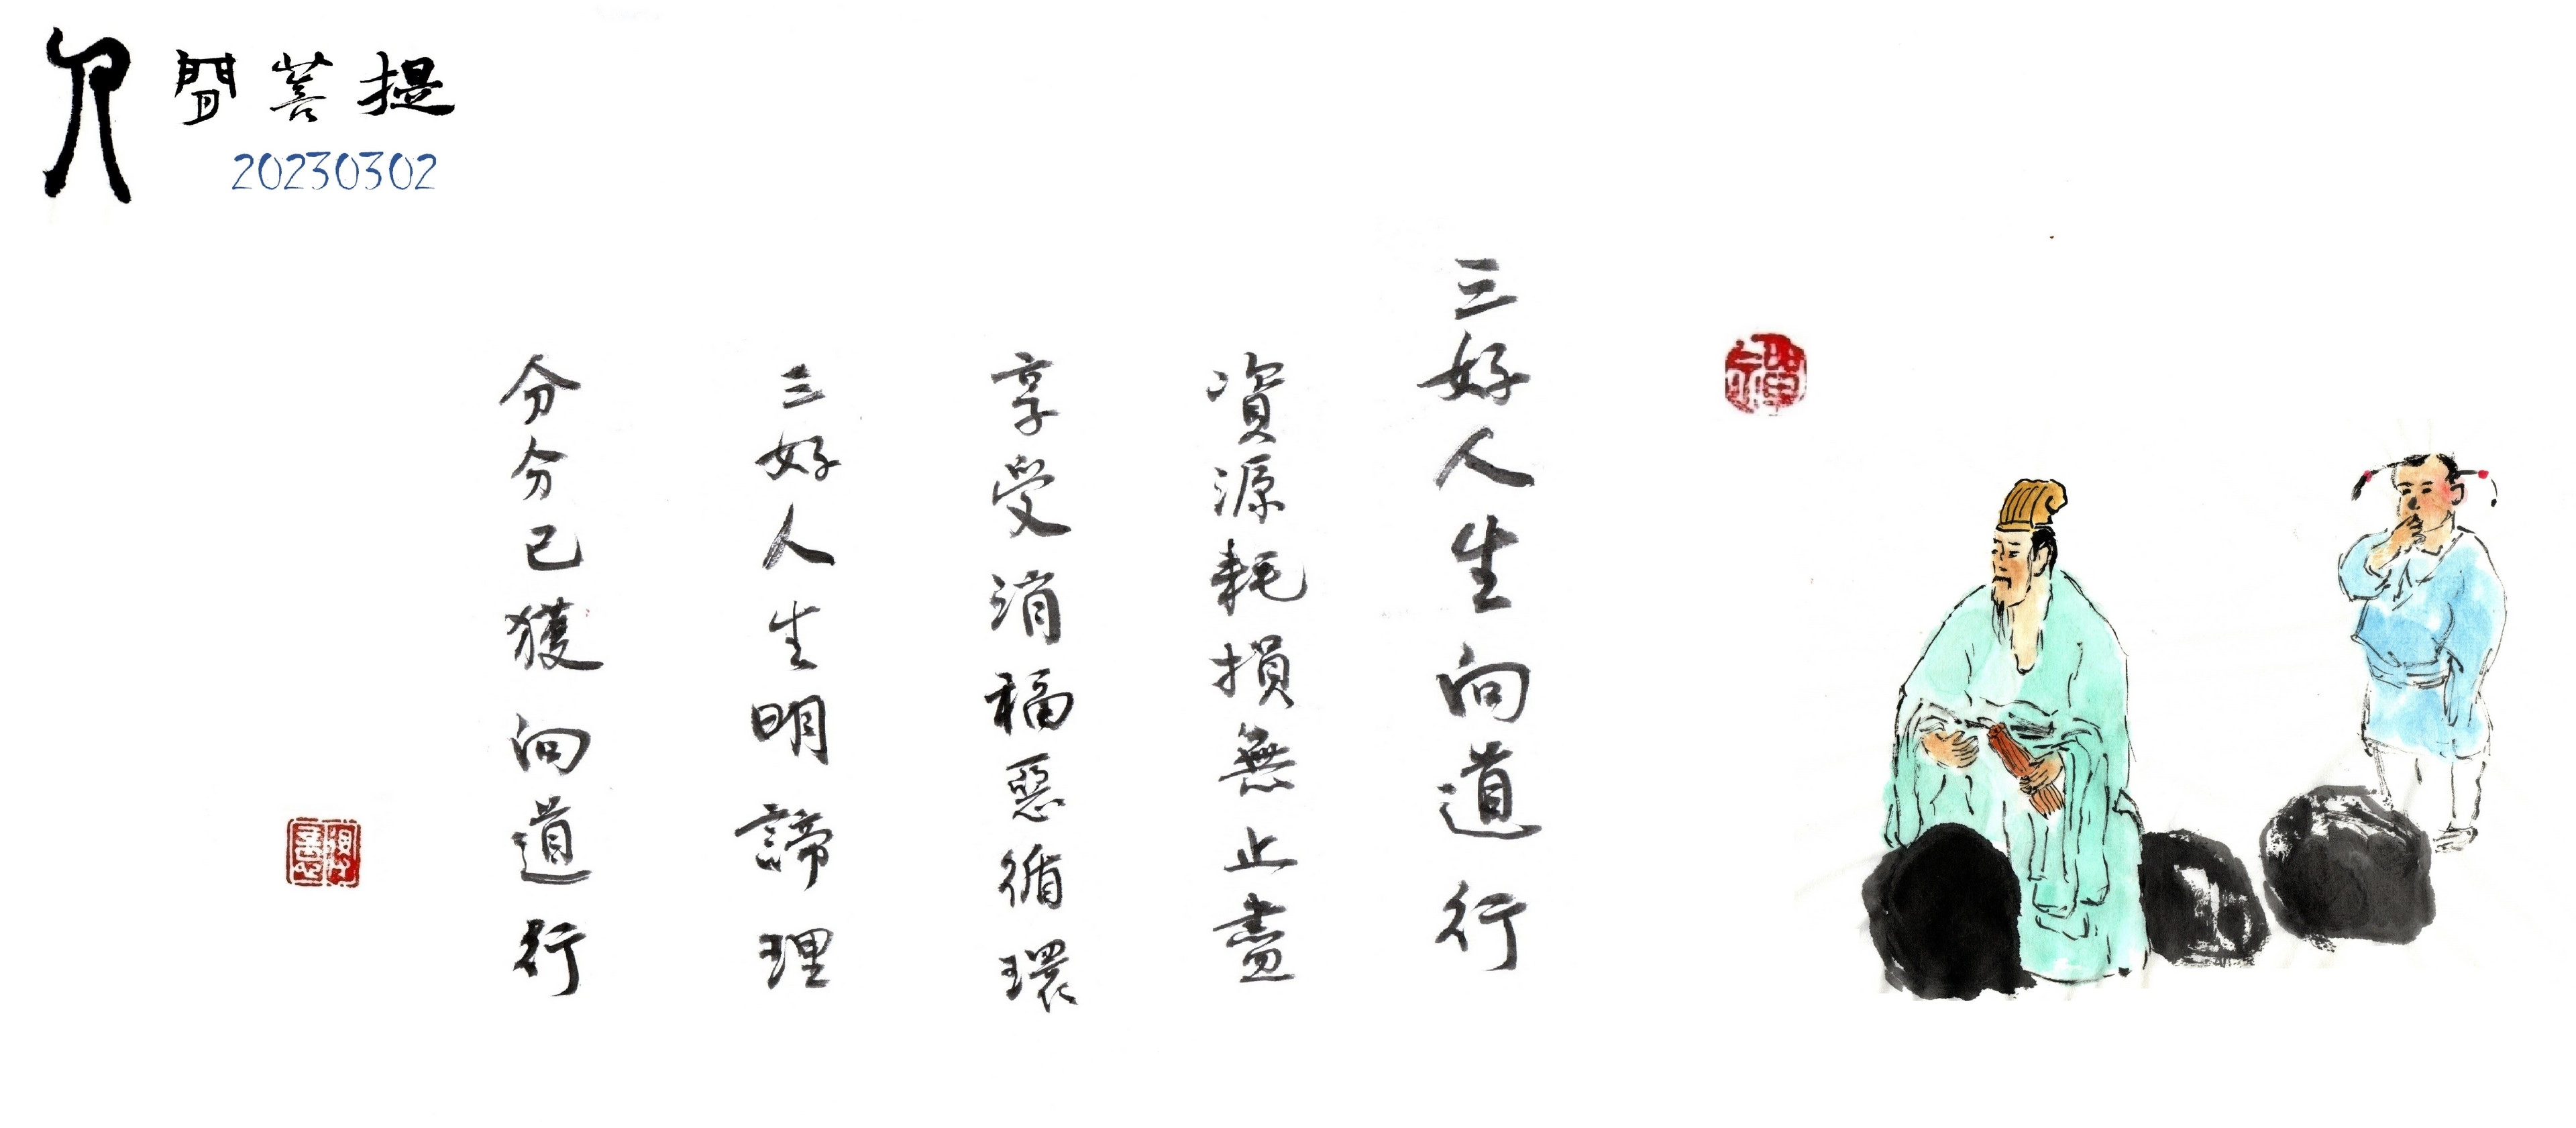 人間菩提
20230302
三好人生向道行
資源耗損無止盡
享受消福惡循環
三好人生明諦理
分分已獲向道行